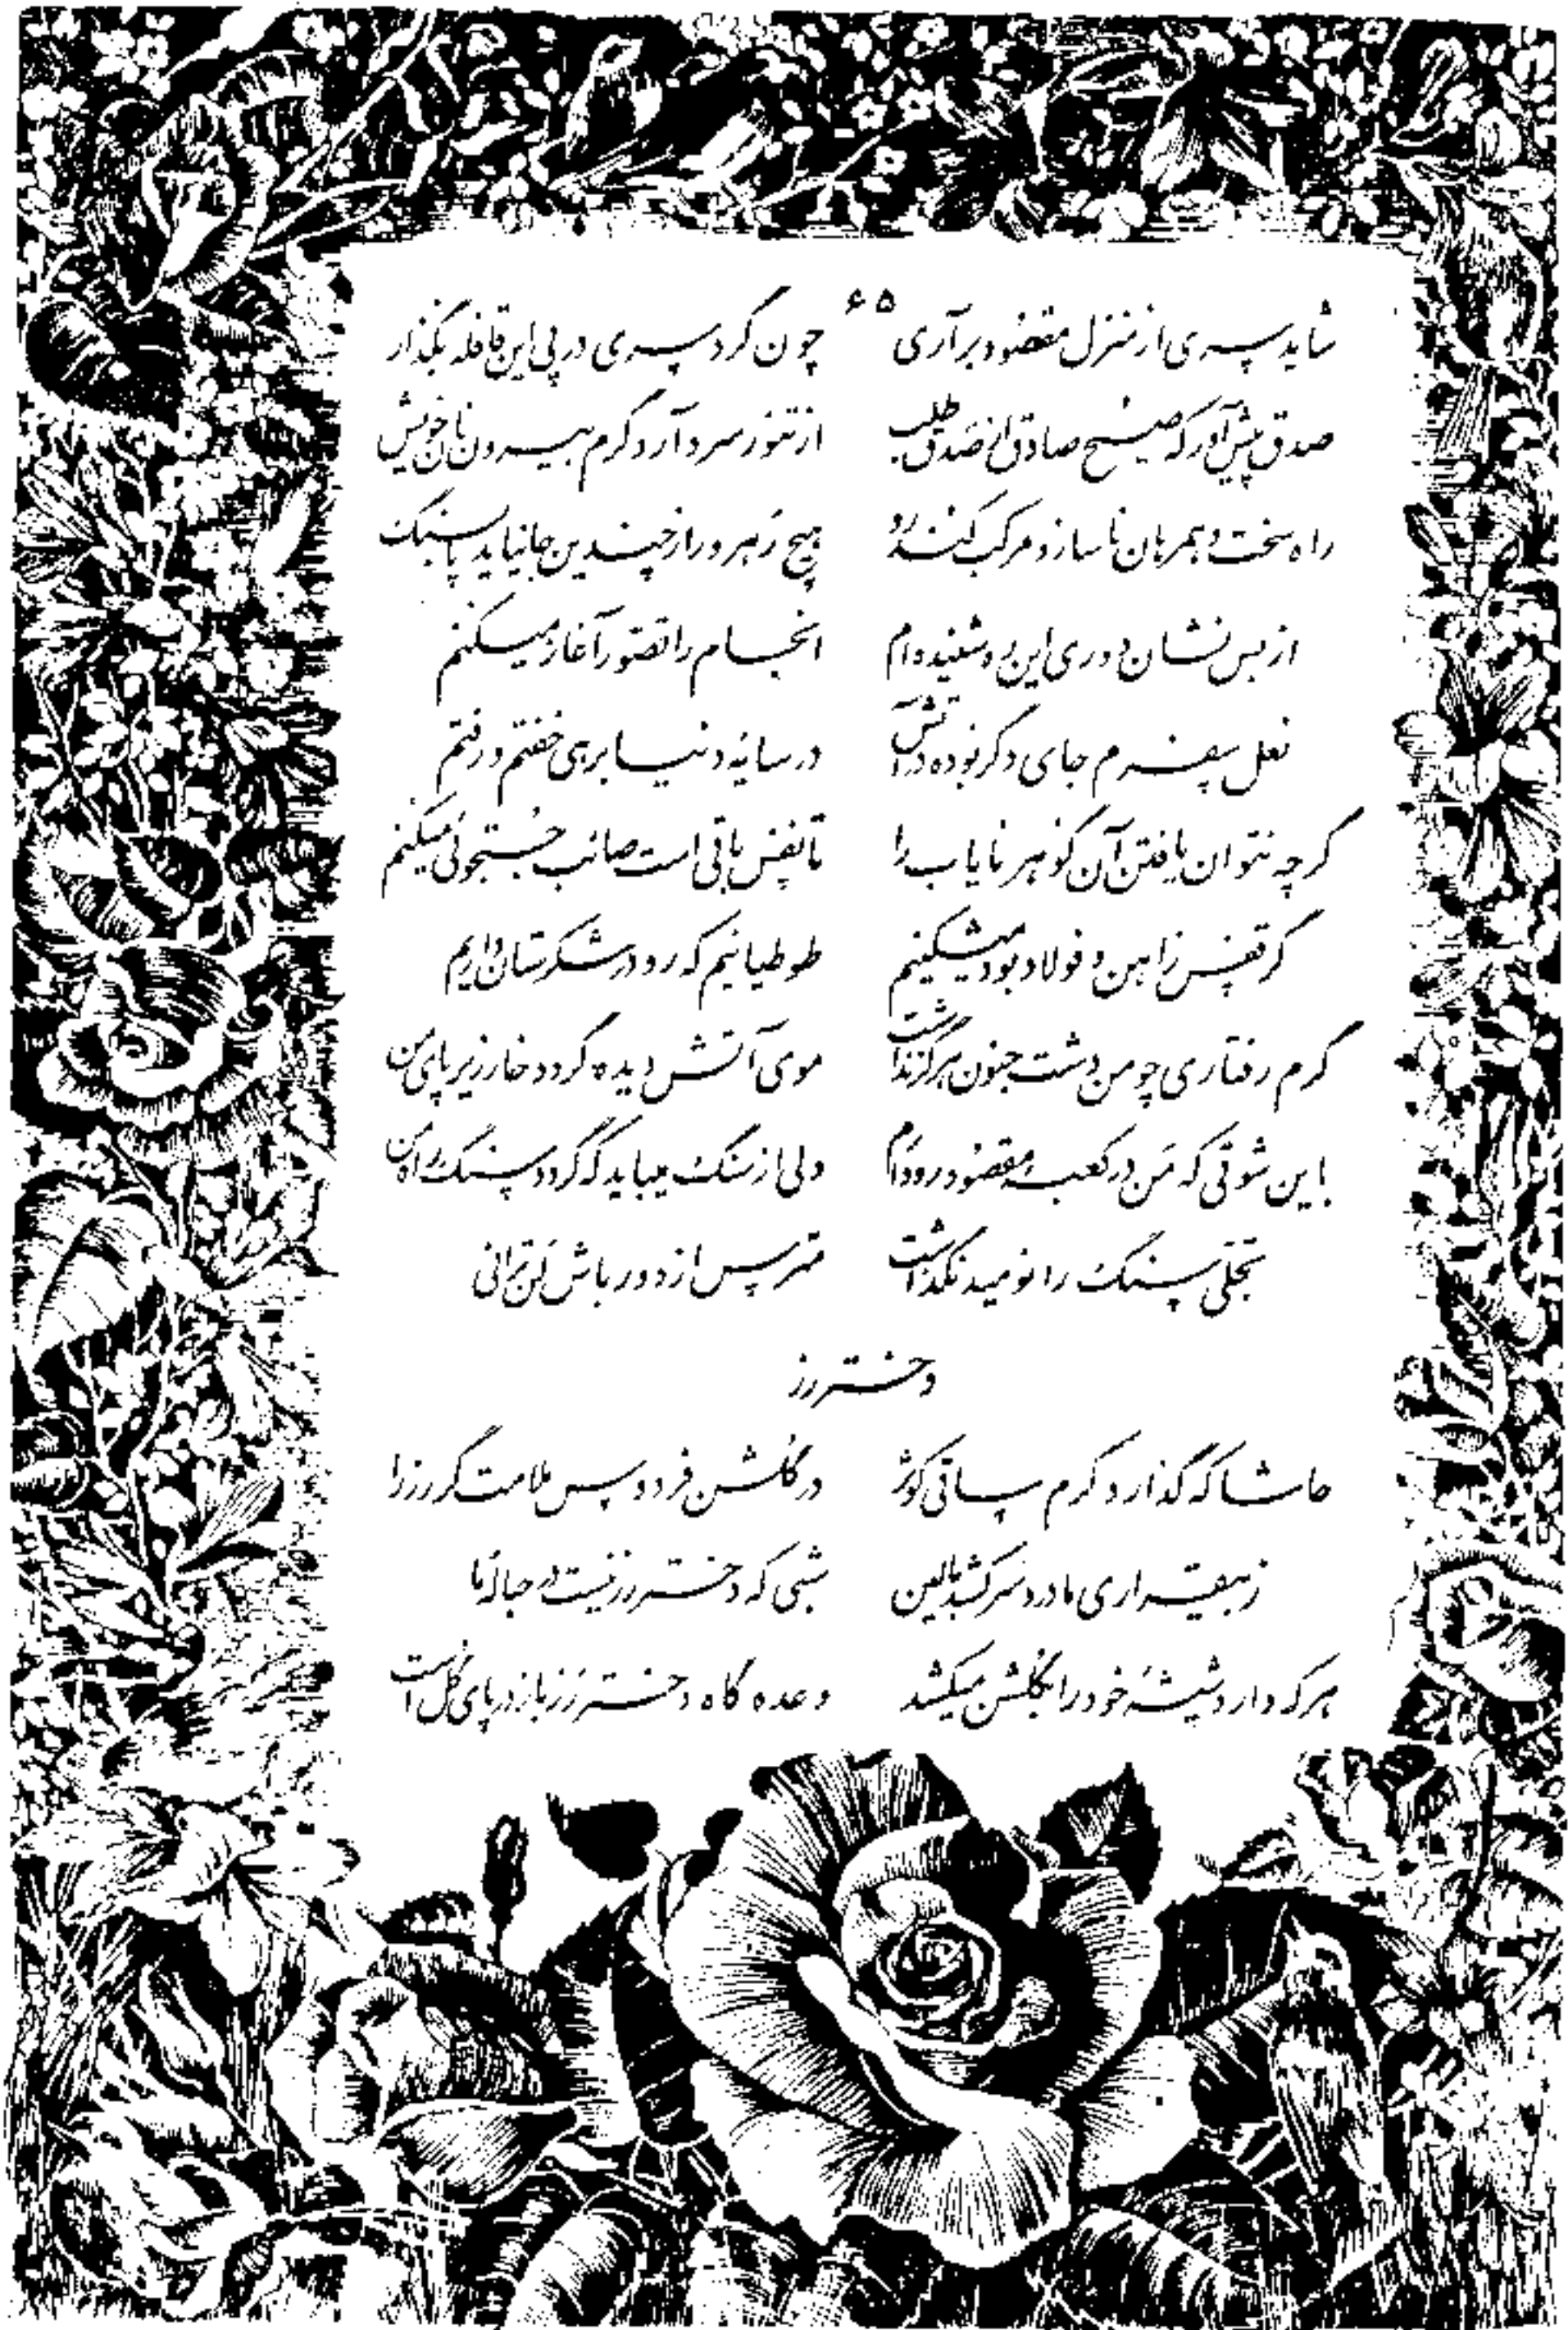 ۶۵
شاید سری از منزل مقصود برآری چون گرد سری در پی این قافله بگذار
صدق پیش آور که صبح صادق از صدق طلب از تنور سرد آرد گرم بیرون نان خویش
راه سخت و همرهان ناساز و مرکب کندرو هیچ رهرو را ز چندین جا نیاید پا بسنگ
از بس نشان دوری این ره شنیده‌ام انجام را تصور آغاز میکنم
نعل سفرم جای دگر بوده در آتش در سایهٔ دنیا برهی خفتم و رفتم
گرچه نتوان یافتن آن گوهر نایاب را تا نفس باقی است صائب جستجوئی میکنم
گر قفس ز آهن و فولاد بود میشکنیم طوطیانیم که رو در شکرستان داریم
گرم رفتاری چو من دشت جنون هرگز نداشت موی آتش دیده گردد خار زیر پای من
باین شوقی که من در کعبهٔ مقصود رو دارم دلی از سنگ میباید که گردد سنگ راه من
تجلی سنگ را نومید نگذاشت مترس از دور باش لن ترانی
دختر رز
حاشا که گذارد کرم ساقی کوثر در گلشن فردوس ملامت گر رز را
ز بیقراری ما درد سر کشد بالین شبی که دختر رز نیست در حبالهٔ ما
هرکه دارد شیشهٔ خود را بگلشن میکشد وعده گاه دختر رز باز در پای گل است